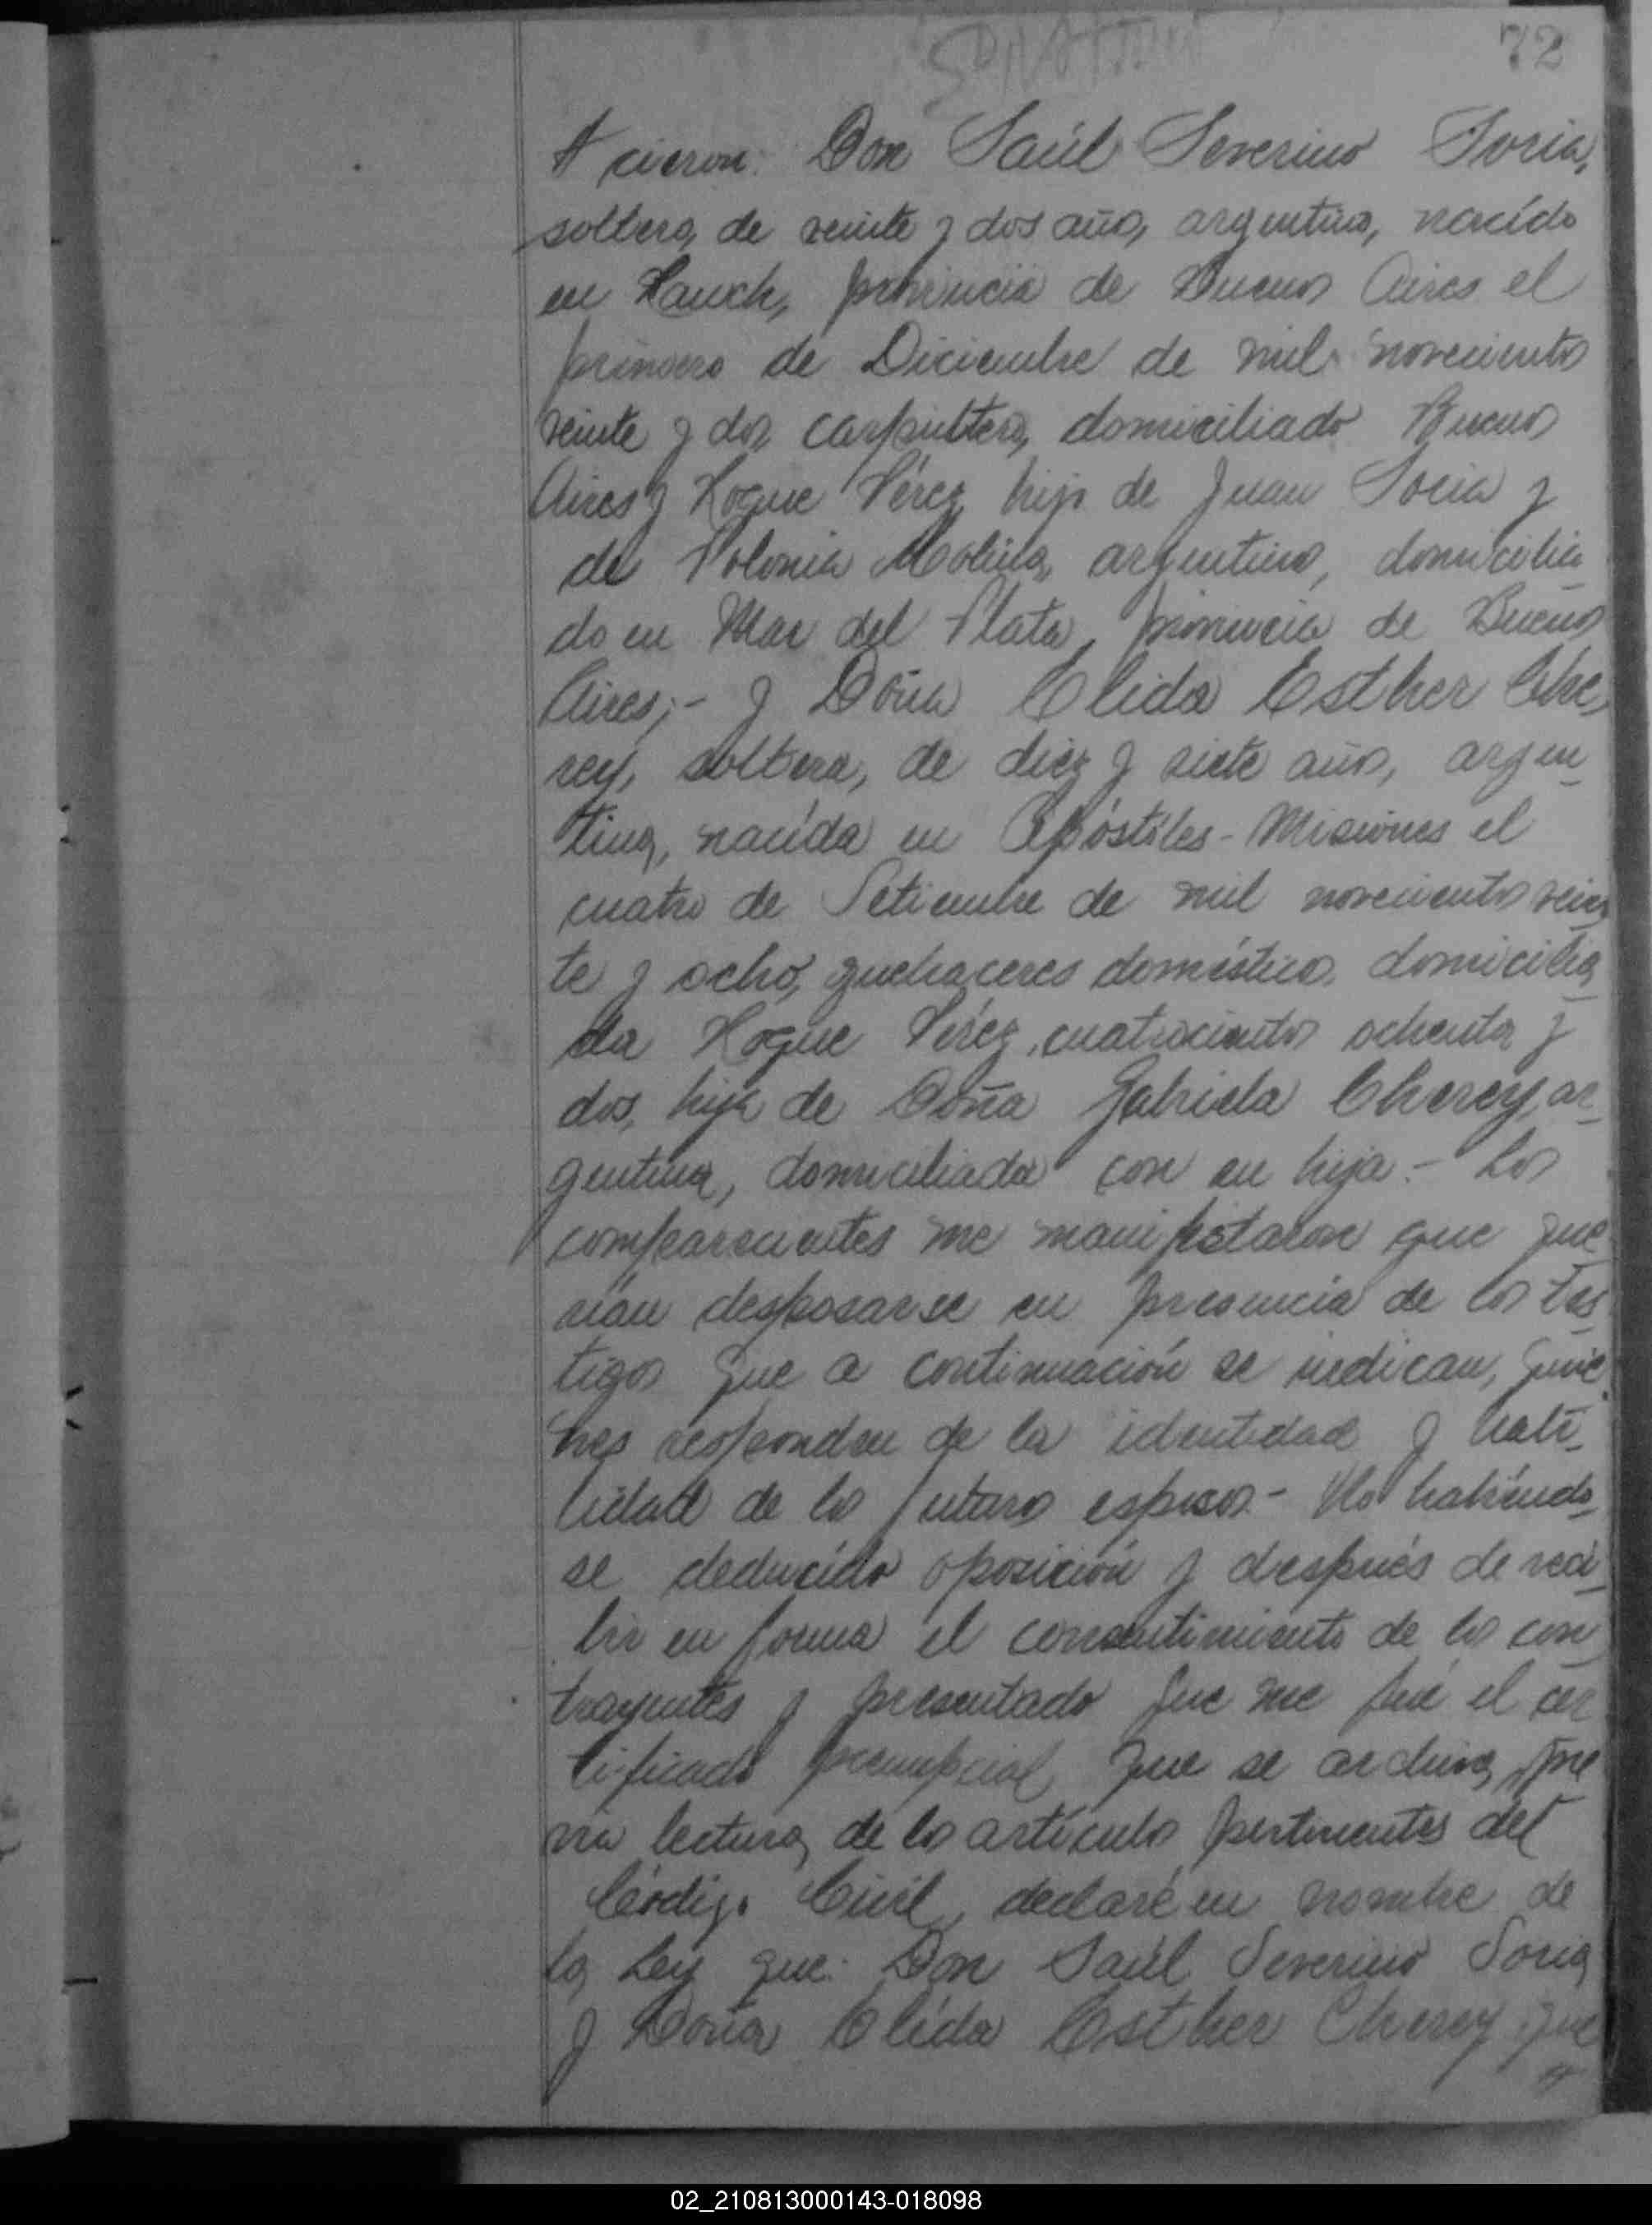 72
cieron: Don Saúl Severino Soria,
soltero, de veinte y dos años, argentino, nacido
en Rauch, provincia de Buenos Aires el
primero de Diciembre de mil novecientos
veinte y dos, carpintero, domiciliado Buenos
Aires y Roque Pérez, hijo de Juan Soria y
de Polonia Molina, argentinos, domicilia
do en Mar del Plata, provincia de Buenos
Aires;- y Doña Elida Esther Che
rey, soltera, de diez y siete años, argen_
tina, nacida en Apóstoles - Misiones el
cuatro de Setiembre de mil novecientos vein_
te y ocho, quehaceres domésticos, domicilia_
da Roque Pérez, cuatrocientos ochenta y
dos, hija de Doña Gabriela Cherey, ar_
gentina, domiciliada con su hija.- Los
comparecientes me manifestaron que que
rían desposarse en presencia de los tes_
tigos que a continuación se indican, quie_
nes responden de la identidad y habi_
lidad de los futuros esposos.- No habiendo_
se deducido oposición y después de reci_
bir en forma el consentimiento de los con
trayentes y presentado que me fué el cer
tificado prenupcial que se archiva, pre
via lectura de los artículos pertinentes del
Código Civil, declaré en nombre de
la Ley que: Don Saúl Severino Soria
y Doña Elida Esther Cherey que
02_210813000143-018098